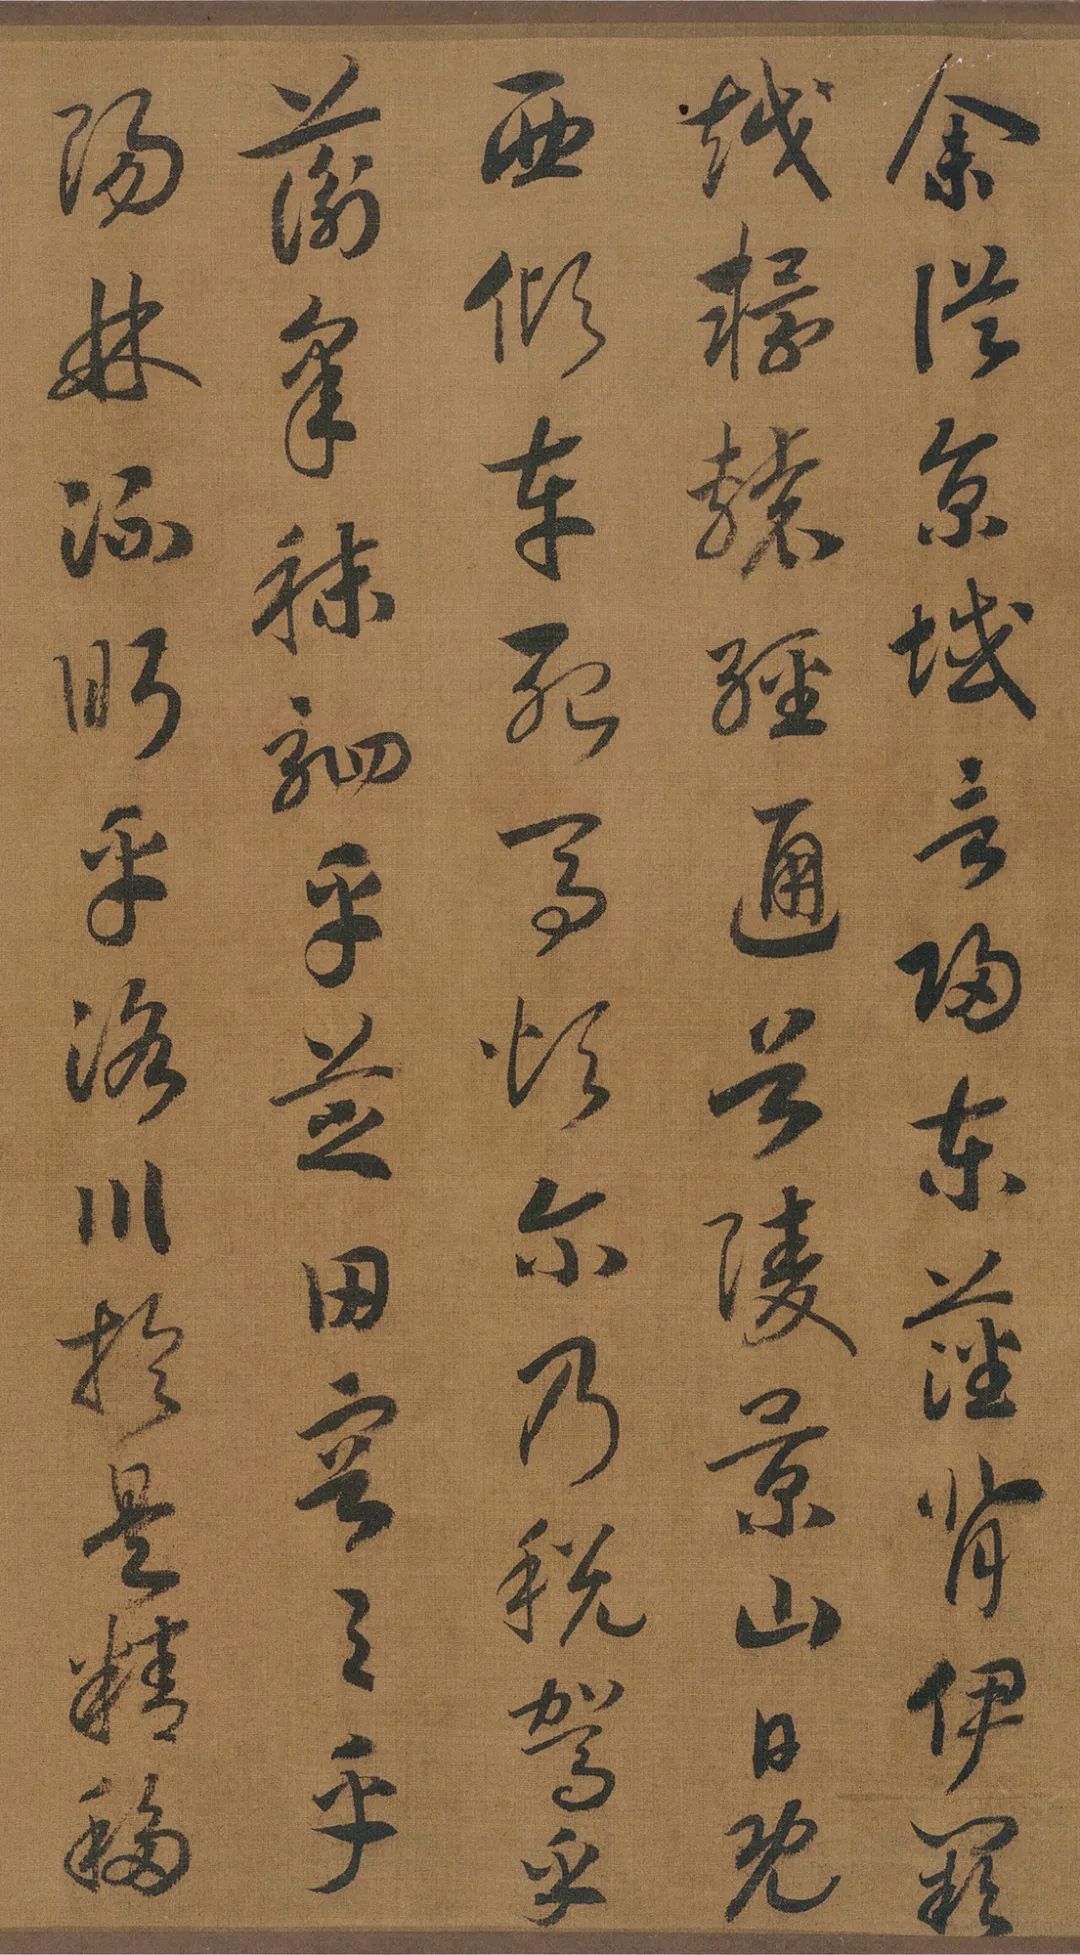 余從京域言歸東藩背伊闕
越轘轅經通谷陵景山日既
西傾車殆馬煩爾乃稅駕乎
蘅皋秣駟乎芝田容與乎
陽林流眄乎洛川於是精移